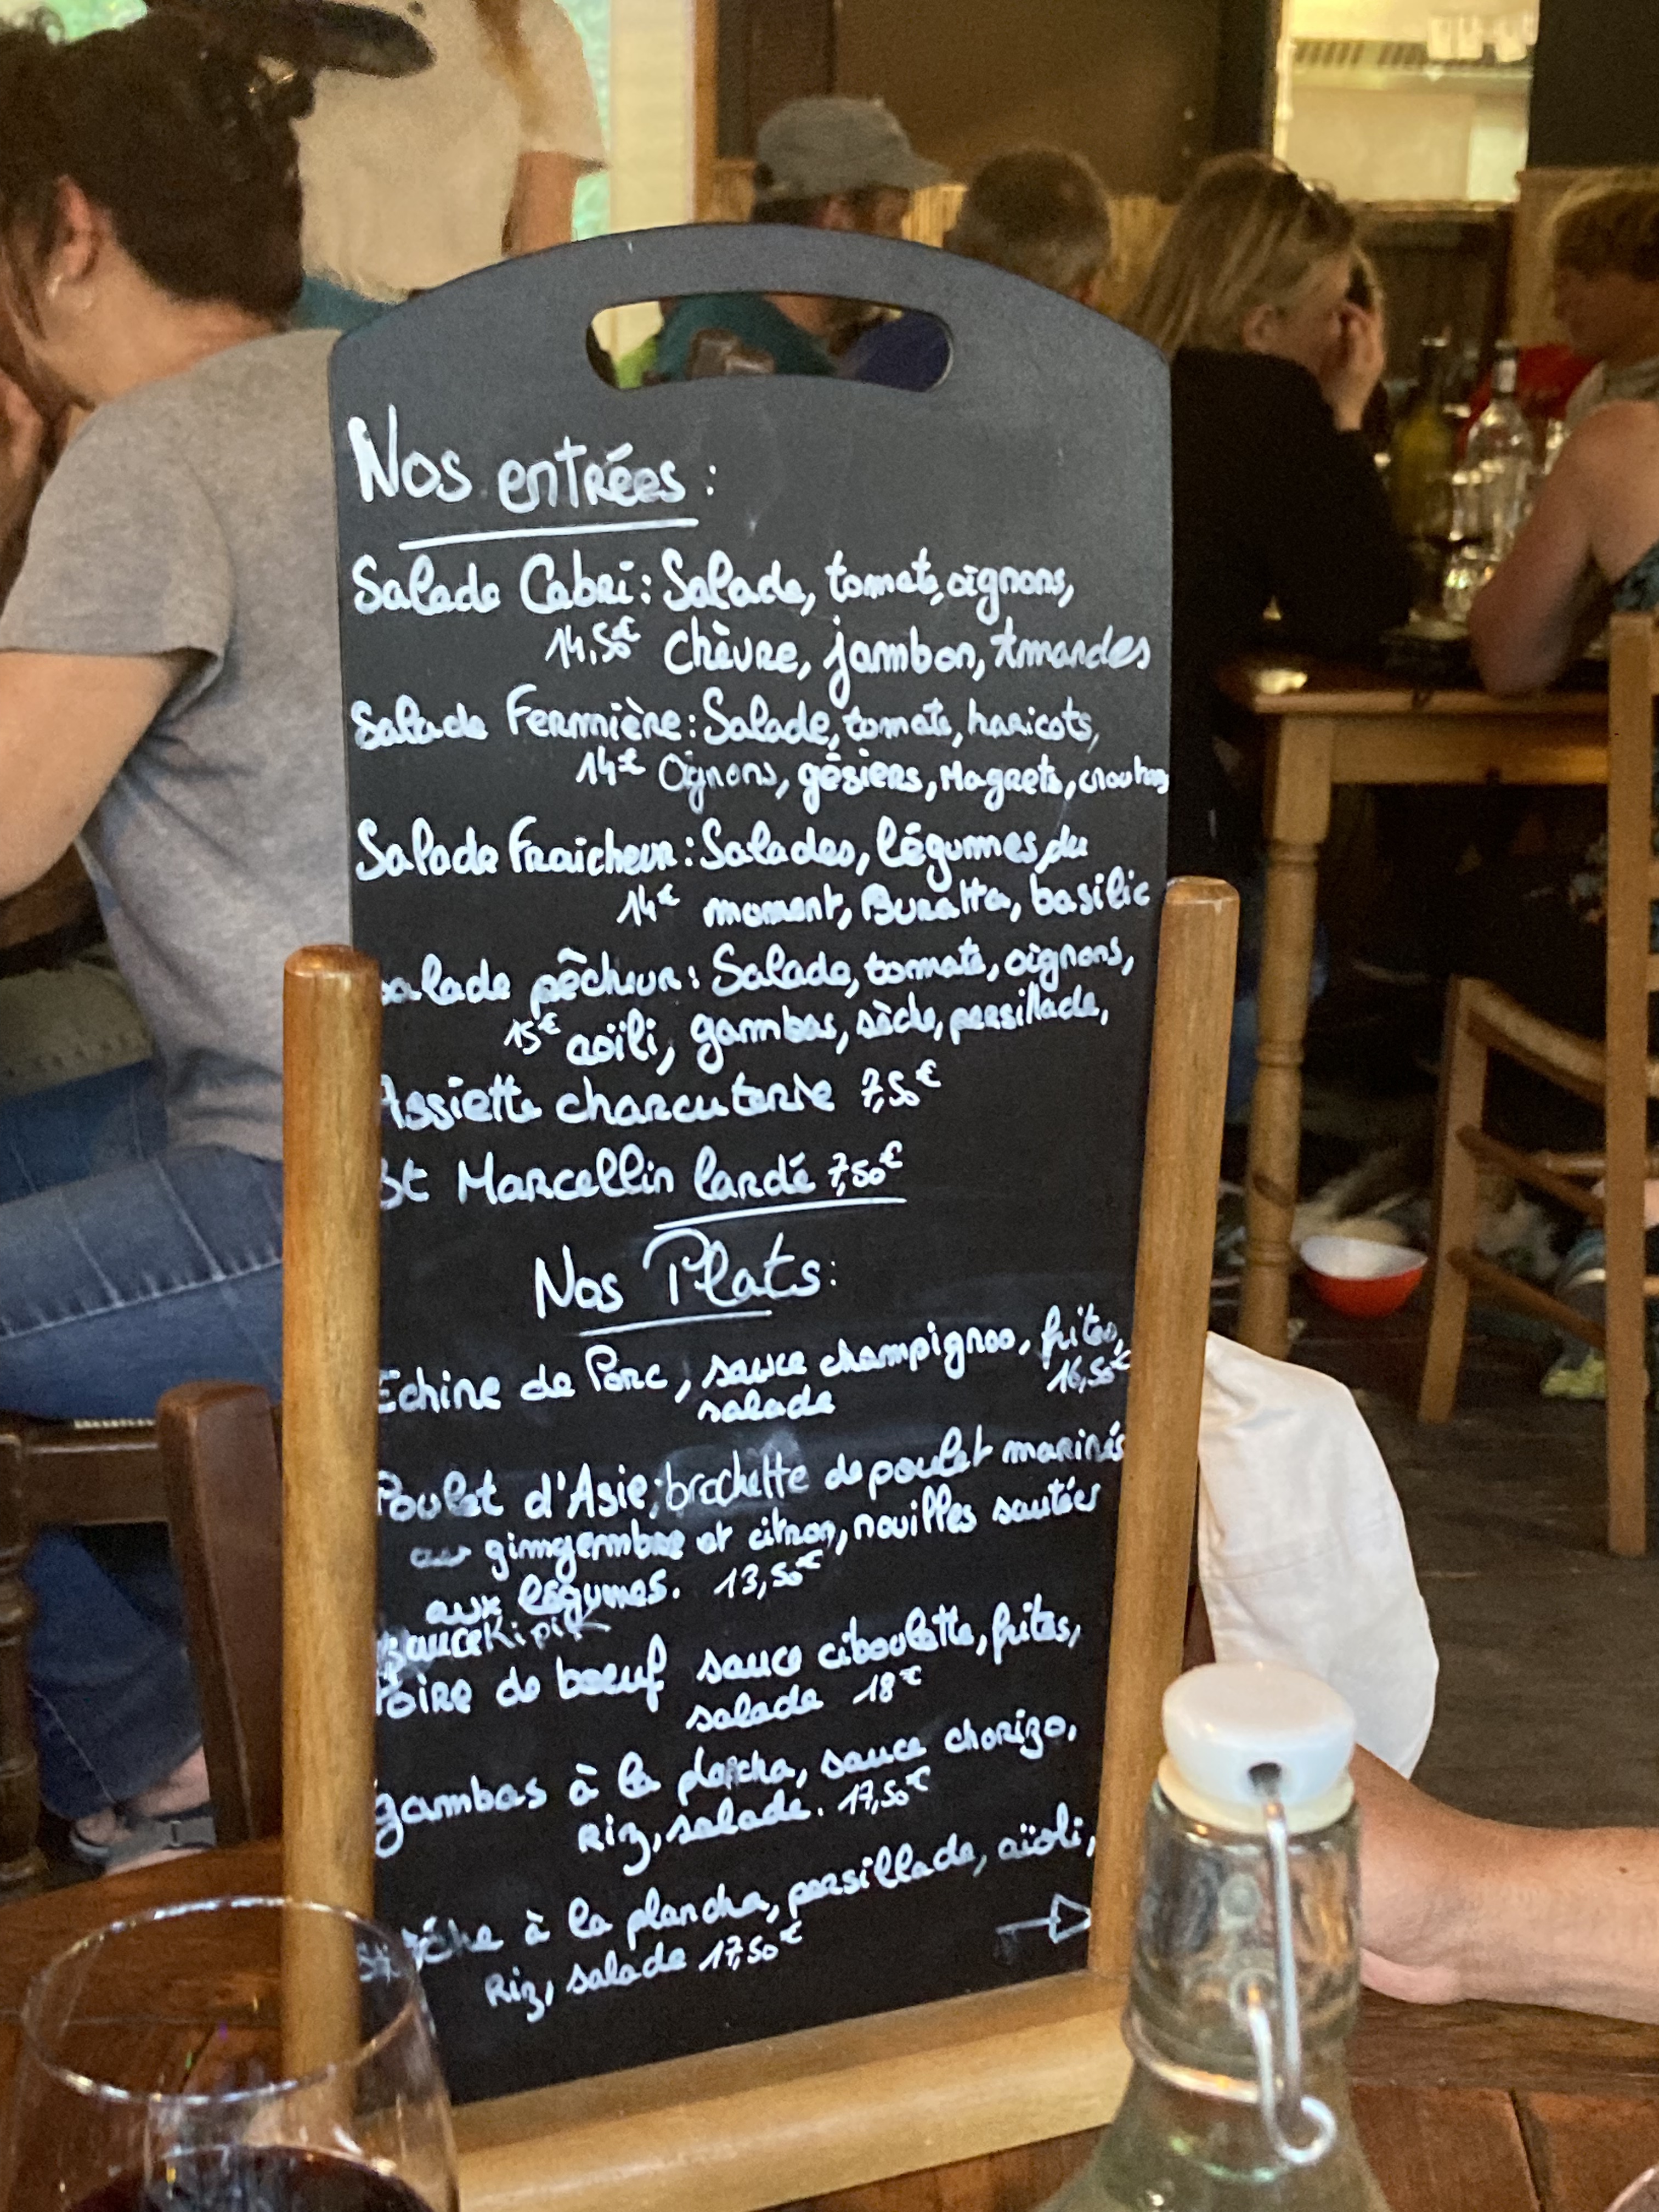 Nos entrées :
Salade Cabri : Salade, tomate, oignons,
14,50€ Chèvre, jambon, Amandes
Salade Fermière : Salade, tomate, haricots,
14€ Oignons, gésiers, Magrets, croutons
Salade Fraicheur : Salades, légumes du
14€ moment, Buratta, basilic
Salade pêcheur : Salade, tomate, oignons,
15€ aoïli, gambas, sèche, persillade,
Assiette charcuterie 7,50€
St Marcellin lardé 7,50€
Nos Plats :
Echine de Porc, sauce champignos, frites,
salade 16,50€
Poulet d'Asie : brochette de poulet marinés
au gimgembre et citron, nouilles sautées
aux légumes. 13,50€
sauce Kipik
Poire de boeuf sauce ciboulette, frites,
salade 18€
gambas à la plancha, sauce chorizo,
Riz, salade. 17,50€
à la plancha, persillade, aïoli,
Riz, salade 17,50€